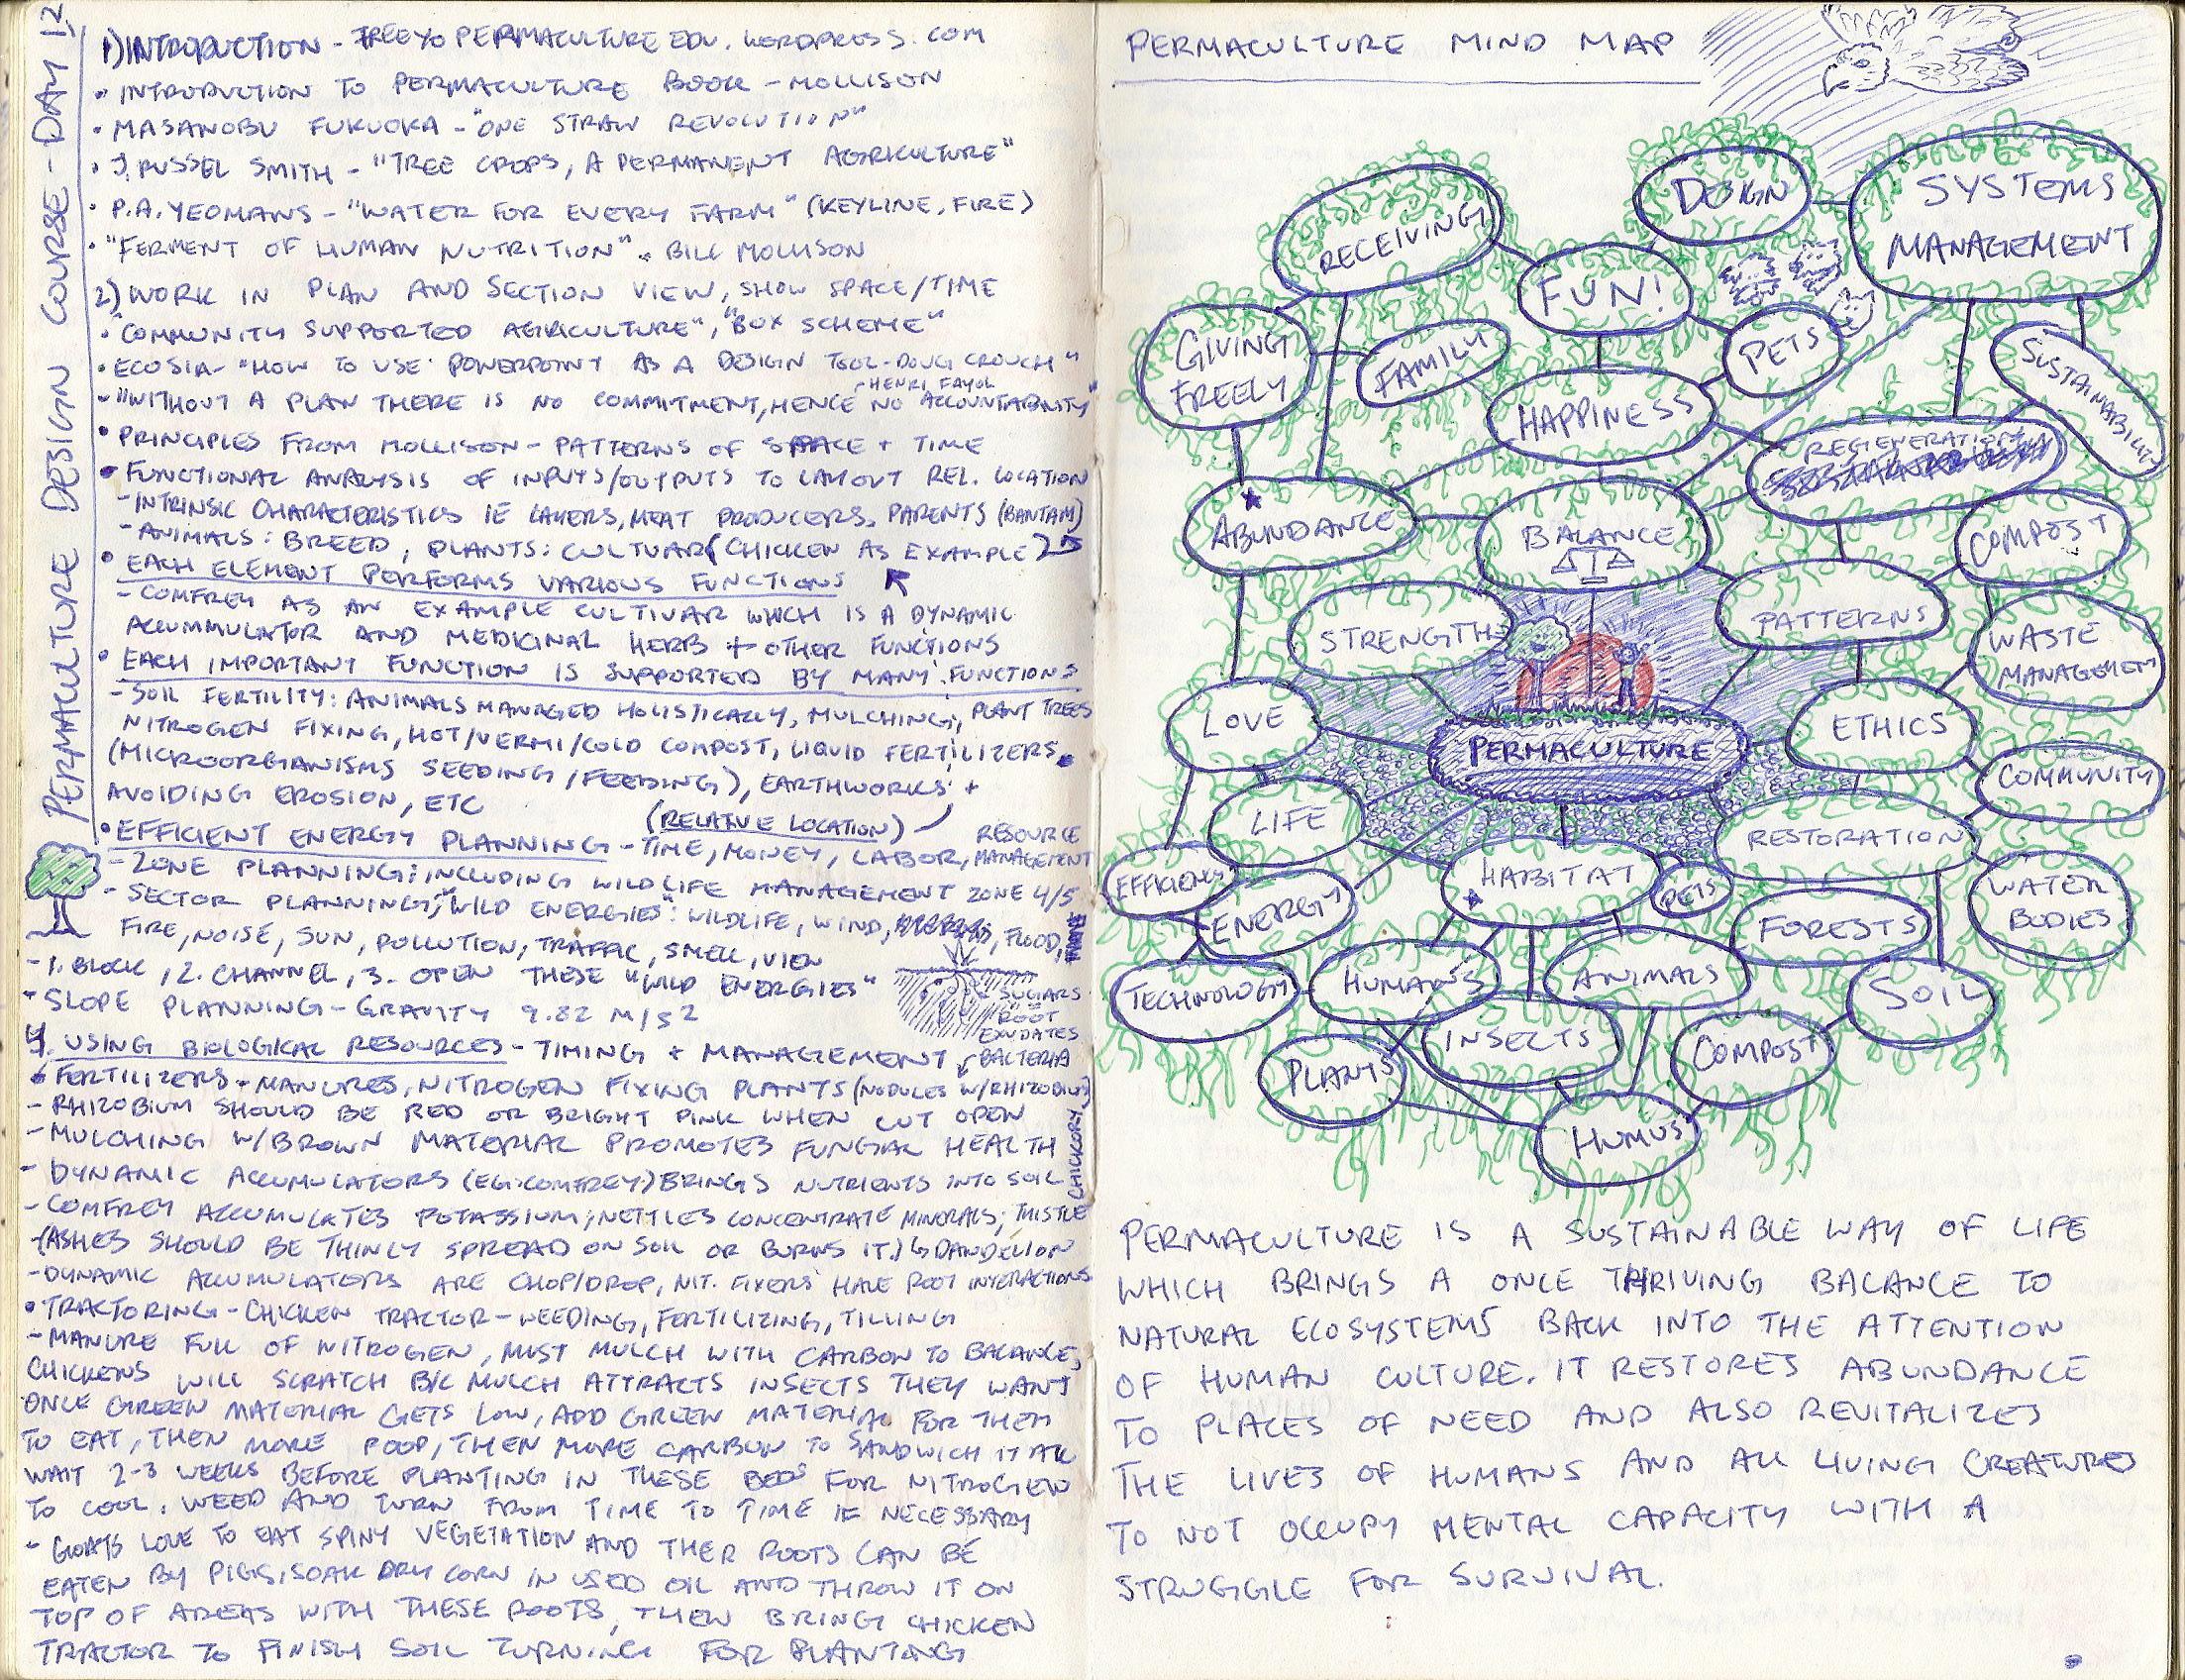 PERMACULTURE DESIGN COURSE - DAY 12
1) INTRODUCTION - TREEYO PERMACULTURE EDU. WORDPRESS. COM
• INTRODUCTION TO PERMACULTURE BOOK - MOLLISON
• MASANOBU FUKUOKA - "ONE STRAW REVOLUTION"
• J. RUSSEL SMITH - "TREE CROPS, A PERMANENT AGRICULTURE"
• P.A. YEOMANS - "WATER FOR EVERY FARM" (KEYLINE, FIRE)
• "FERMENT OF HUMAN NUTRITION" - BILL MOLLISON
2) WORK IN PLAN AND SECTION VIEW, SHOW SPACE/TIME
• "COMMUNITY SUPPORTED AGRICULTURE", "BOX SCHEME"
• ECOSIA - "HOW TO USE POWERPOINT AS A DESIGN TOOL - DOUG CROUCH"
- HENRI FAYOL
- "WITHOUT A PLAN THERE IS NO COMMITMENT, HENCE NO ACCOUNTABILITY"
• PRINCIPLES FROM MOLLISON - PATTERNS OF SPACE + TIME
• FUNCTIONAL ANALYSIS OF INPUTS/OUTPUTS TO LAYOUT REL. LOCATION
- INTRINSIC CHARACTERISTICS IE LAYERS, MEAT PRODUCERS, PARENTS (BANTAM)
- ANIMALS: BREED, PLANTS: CULTIVAR (CHICKEN AS EXAMPLE)
• EACH ELEMENT PERFORMS VARIOUS FUNCTIONS
- COMFREY AS AN EXAMPLE CULTIVAR WHICH IS A DYNAMIC
ACCUMMULATOR AND MEDICINAL HERB + OTHER FUNCTIONS
• EACH IMPORTANT FUNCTION IS SUPPORTED BY MANY FUNCTIONS
- SOIL FERTILITY: ANIMALS MANAGED HOLISTICALLY, MULCHING, PLANT TREES
NITROGEN FIXING, HOT/VERMI/COLD COMPOST, LIQUID FERTILIZERS
(MICROORGANISMS SEEDING/FEEDING), EARTHWORKS +
AVOIDING EROSION, ETC
(RELATIVE LOCATION)
• EFFICIENT ENERGY PLANNING - TIME, MONEY, LABOR, RESOURCE MANAGEMENT
- ZONE PLANNING: INCLUDING WILDLIFE MANAGEMENT ZONE 4/5
- SECTOR PLANNING, "WILD ENERGIES": WILDLIFE, WIND, FLOOD,
FIRE, NOISE, SUN, POLLUTION, TRAFFIC, SMELL, VIEW
- 1. BLOCK, 2. CHANNEL, 3. OPEN THESE "WILD ENERGIES"
- SLOPE PLANNING - GRAVITY 9.82 M/S2
SUGARS
ROOT
EXUDATES
BACTERIA
4. USING BIOLOGICAL RESOURCES - TIMING + MANAGEMENT
• FERTILIZERS - MANURES, NITROGEN FIXING PLANTS (NODULES W/RHIZOBIUM)
- RHIZOBIUM SHOULD BE RED OR BRIGHT PINK WHEN CUT OPEN
- MULCHING W/BROWN MATERIAL PROMOTES FUNGAL HEALTH
- DYNAMIC ACCUMULATORS (EG: COMFREY) BRINGS NUTRIENTS INTO SOIL
CHICKORY
- COMFREY ACCUMULATES POTASSIUM; NETTLES CONCENTRATE MINERALS; THISTLE
- (ASHES SHOULD BE THINLY SPREAD ON SOIL OR BURNS IT.) DANDELION
- DYNAMIC ACCUMULATORS ARE CHOP/DROP, NIT. FIXERS HAVE ROOT INTERACTIONS
• TRACTORING - CHICKEN TRACTOR - WEEDING, FERTILIZING, TILLING
- MANURE FULL OF NITROGEN, MUST MULCH WITH CARBON TO BALANCE,
CHICKENS WILL SCRATCH B/C MULCH ATTRACTS INSECTS THEY WANT
ONCE GREEN MATERIAL GETS LOW, ADD GREEN MATERIAL FOR THEM
TO EAT, THEN MORE POOP, THEN MORE CARBON TO SANDWICH IT ALL
WAIT 2-3 WEEKS BEFORE PLANTING IN THESE BEDS FOR NITROGEN
TO COOL. WEED AND TURN FROM TIME TO TIME IF NECESSARY
- GOATS LOVE TO EAT SPINY VEGETATION AND THER ROOTS CAN BE
EATEN BY PIGS, SOAK DRY CORN IN USED OIL AND THROW IT ON
TOP OF AREAS WITH THESE ROOTS, THEN BRING CHICKEN
TRACTOR TO FINISH SOIL TURNING FOR PLANTING
PERMACULTURE MIND MAP
DESIGN
SYSTEMS
MANAGEMENT
RECEIVING
FUN!
GIVING
FREELY
FAMILY
PETS
SUSTAINABILITY
HAPPINESS
REGENERATION
ABUNDANCE
BALANCE
COMPOST
STRENGTH
PATTERNS
WASTE
MANAGEMENT
LOVE
PERMACULTURE
ETHICS
COMMUNITY
LIFE
RESTORATION
EFFICIENCY
ENERGY
HABITAT
PETS
FORESTS
WATER
BODIES
TECHNOLOGY
HUMANS
ANIMALS
SOIL
INSECTS
PLANTS
COMPOST
HUMUS
PERMACULTURE IS A SUSTAINABLE WAY OF LIFE
WHICH BRINGS A ONCE THRIVING BALANCE TO
NATURAL ECOSYSTEMS BACK INTO THE ATTENTION
OF HUMAN CULTURE. IT RESTORES ABUNDANCE
TO PLACES OF NEED AND ALSO REVITALIZES
THE LIVES OF HUMANS AND ALL LIVING CREATURES
TO NOT OCCUPY MENTAL CAPACITY WITH A
STRUGGLE FOR SURVIVAL.